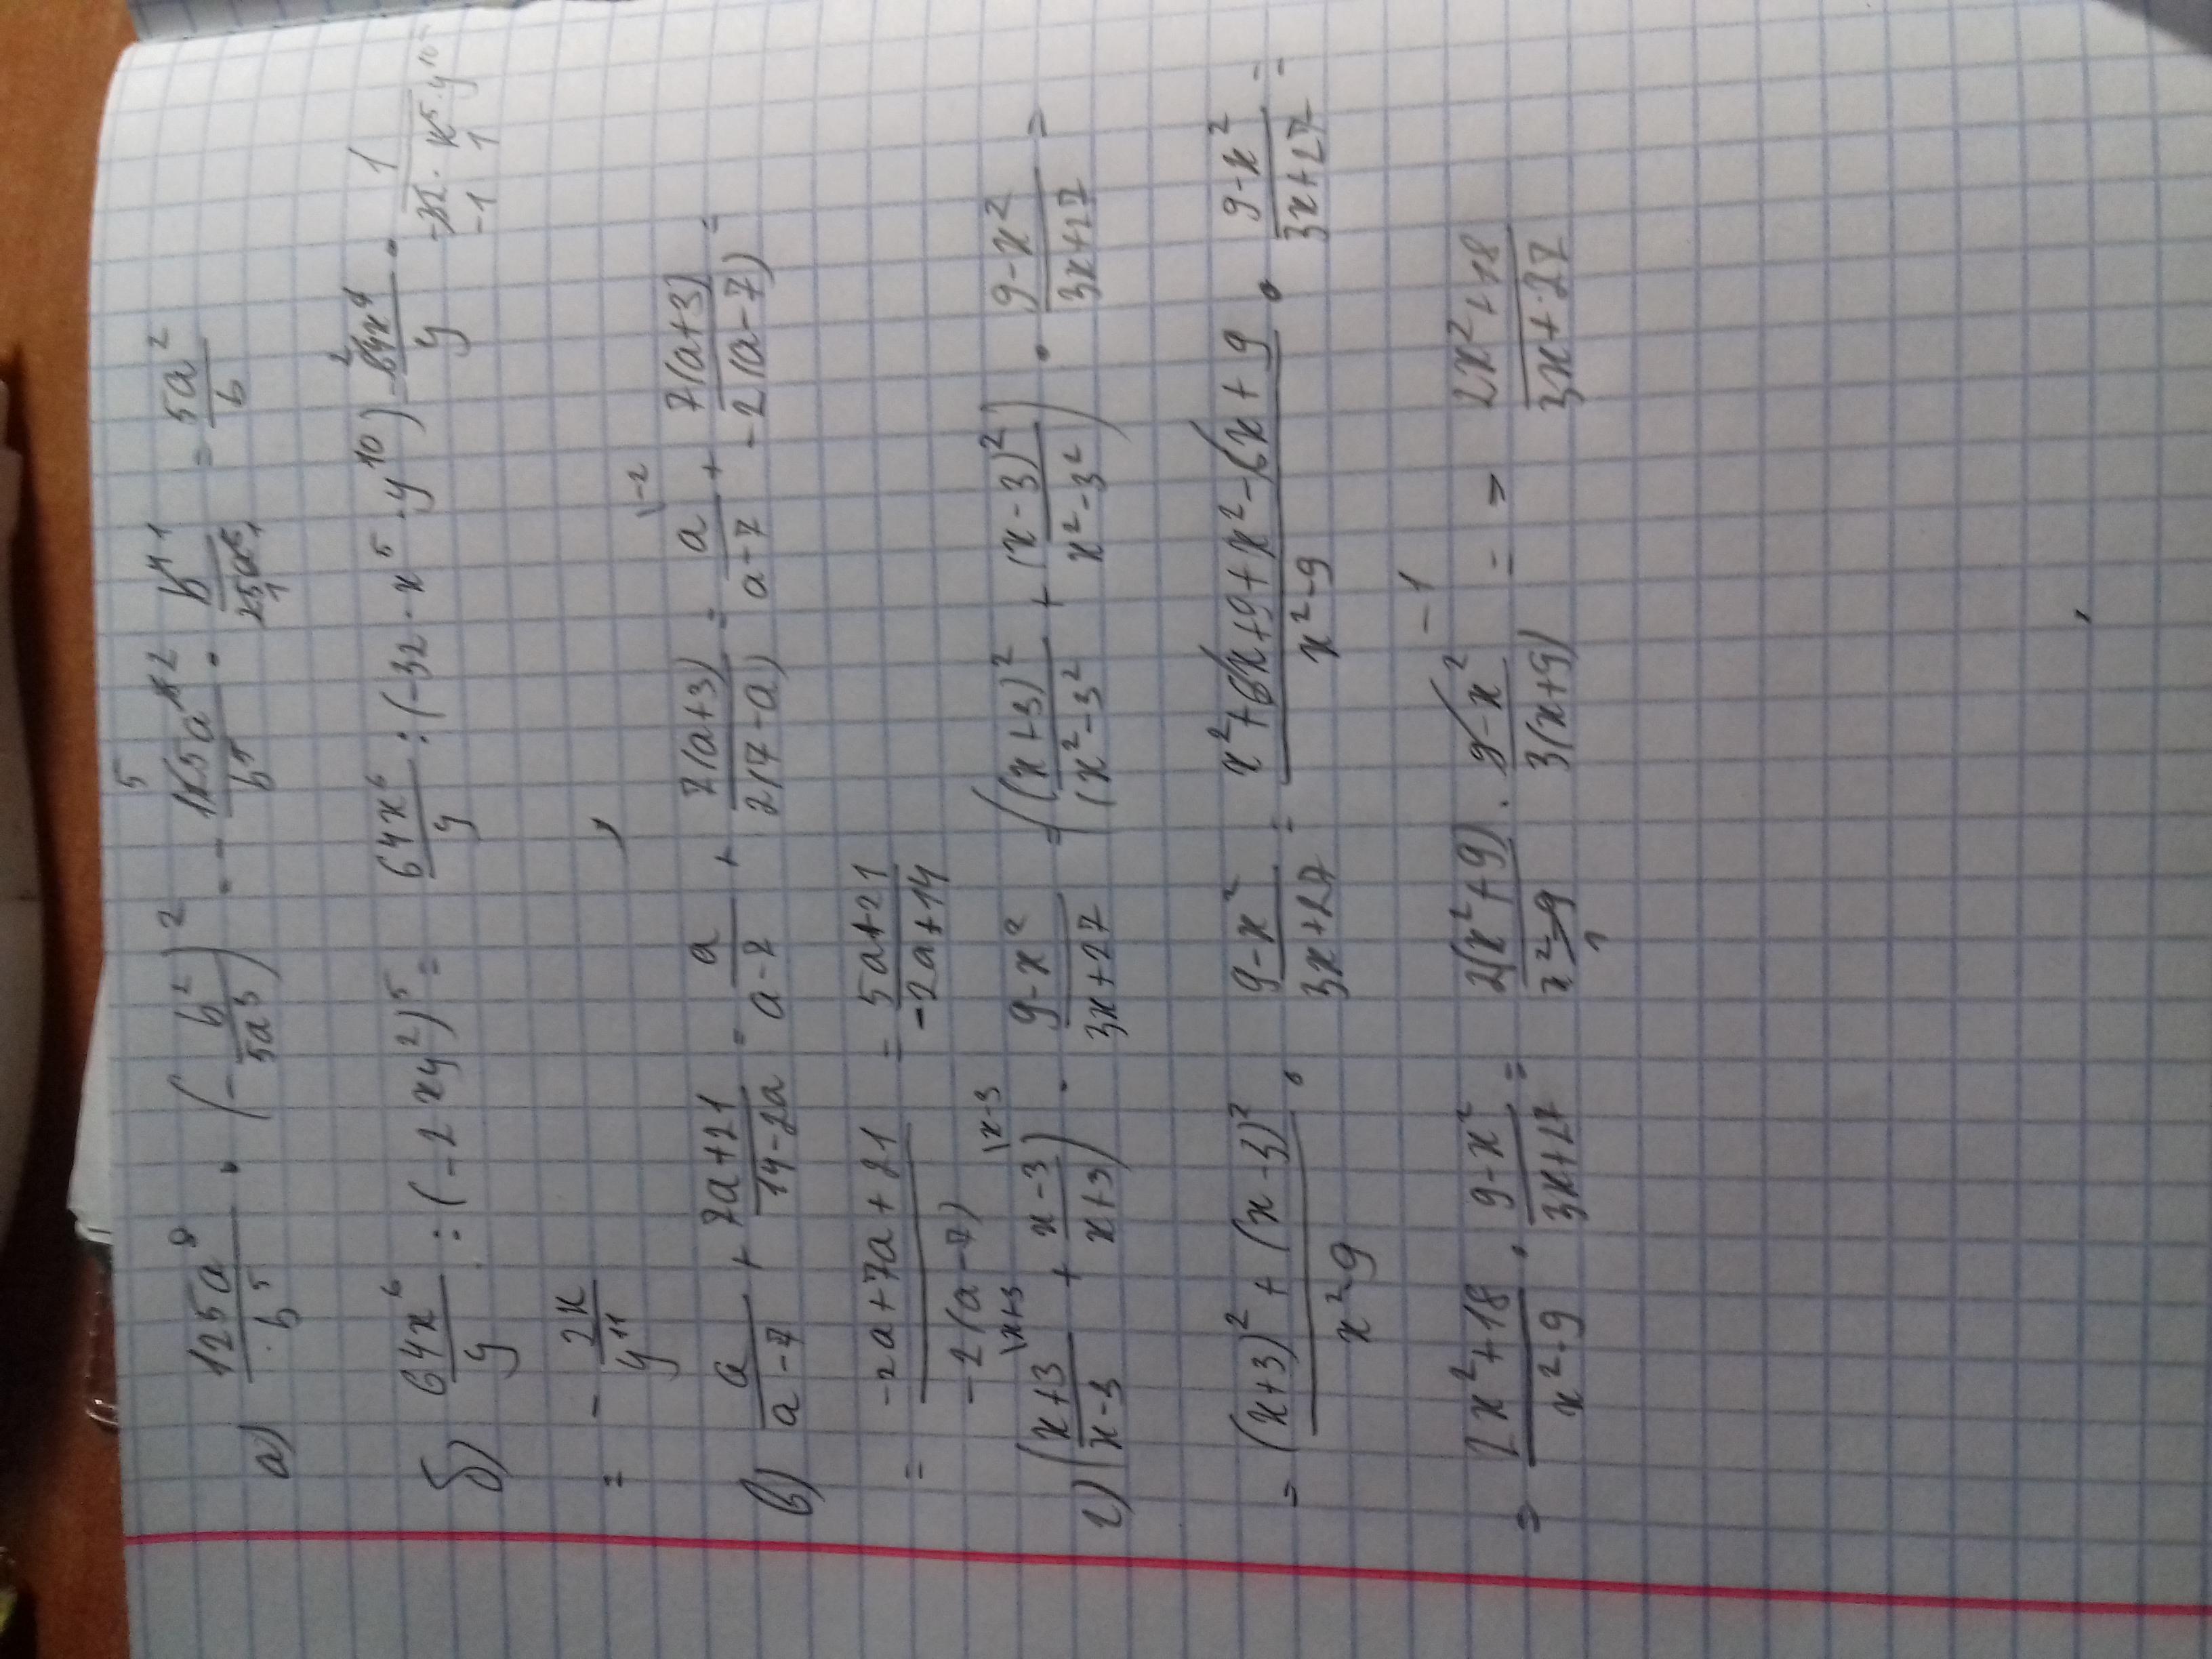 а) 125a⁸/b⁵ · (-b²/5a³)² = - 125a⁸ 2/b⁵ · b⁴ 1/25a⁶ 1 = 5a²/b
б) 64x⁶/y : (-2xy²)⁵ = 64x⁶/y : (-32 · x⁵ · y¹⁰) 64x⁶/y · 1/-32 · x⁵ · y¹⁰
= - 2x/y¹¹
в) a/a-7 + 7a+21/14-2a = a/a-7 + 7(a+3)/2(7-a) = a/a-7 \-2 + 7(a+3)/-2(a-7) =
= -2a+7a+21/-2(a-7) = 5a+21/-2a+14
г) (x+3/x-3 \x+3 + x-3/x+3 \x-3) · 9-x²/3x+27 = ((x+3)²/(x²-3² + (x-3)²/x²-3²) · 9-x²/3x+27 =
= (x+3)²+(x-3)²/x²-9 · 9-x²/3x+27 = x²+6x+9+x²-6x+9/x²-9 · 9-x²/3x+27 =
= 2x²+18/x²-9 · 9-x²/3x+27 = 2(x²+9)/x²-9 1 · 9-x² -1/3(x+9) = - 2x²+18/3x+27